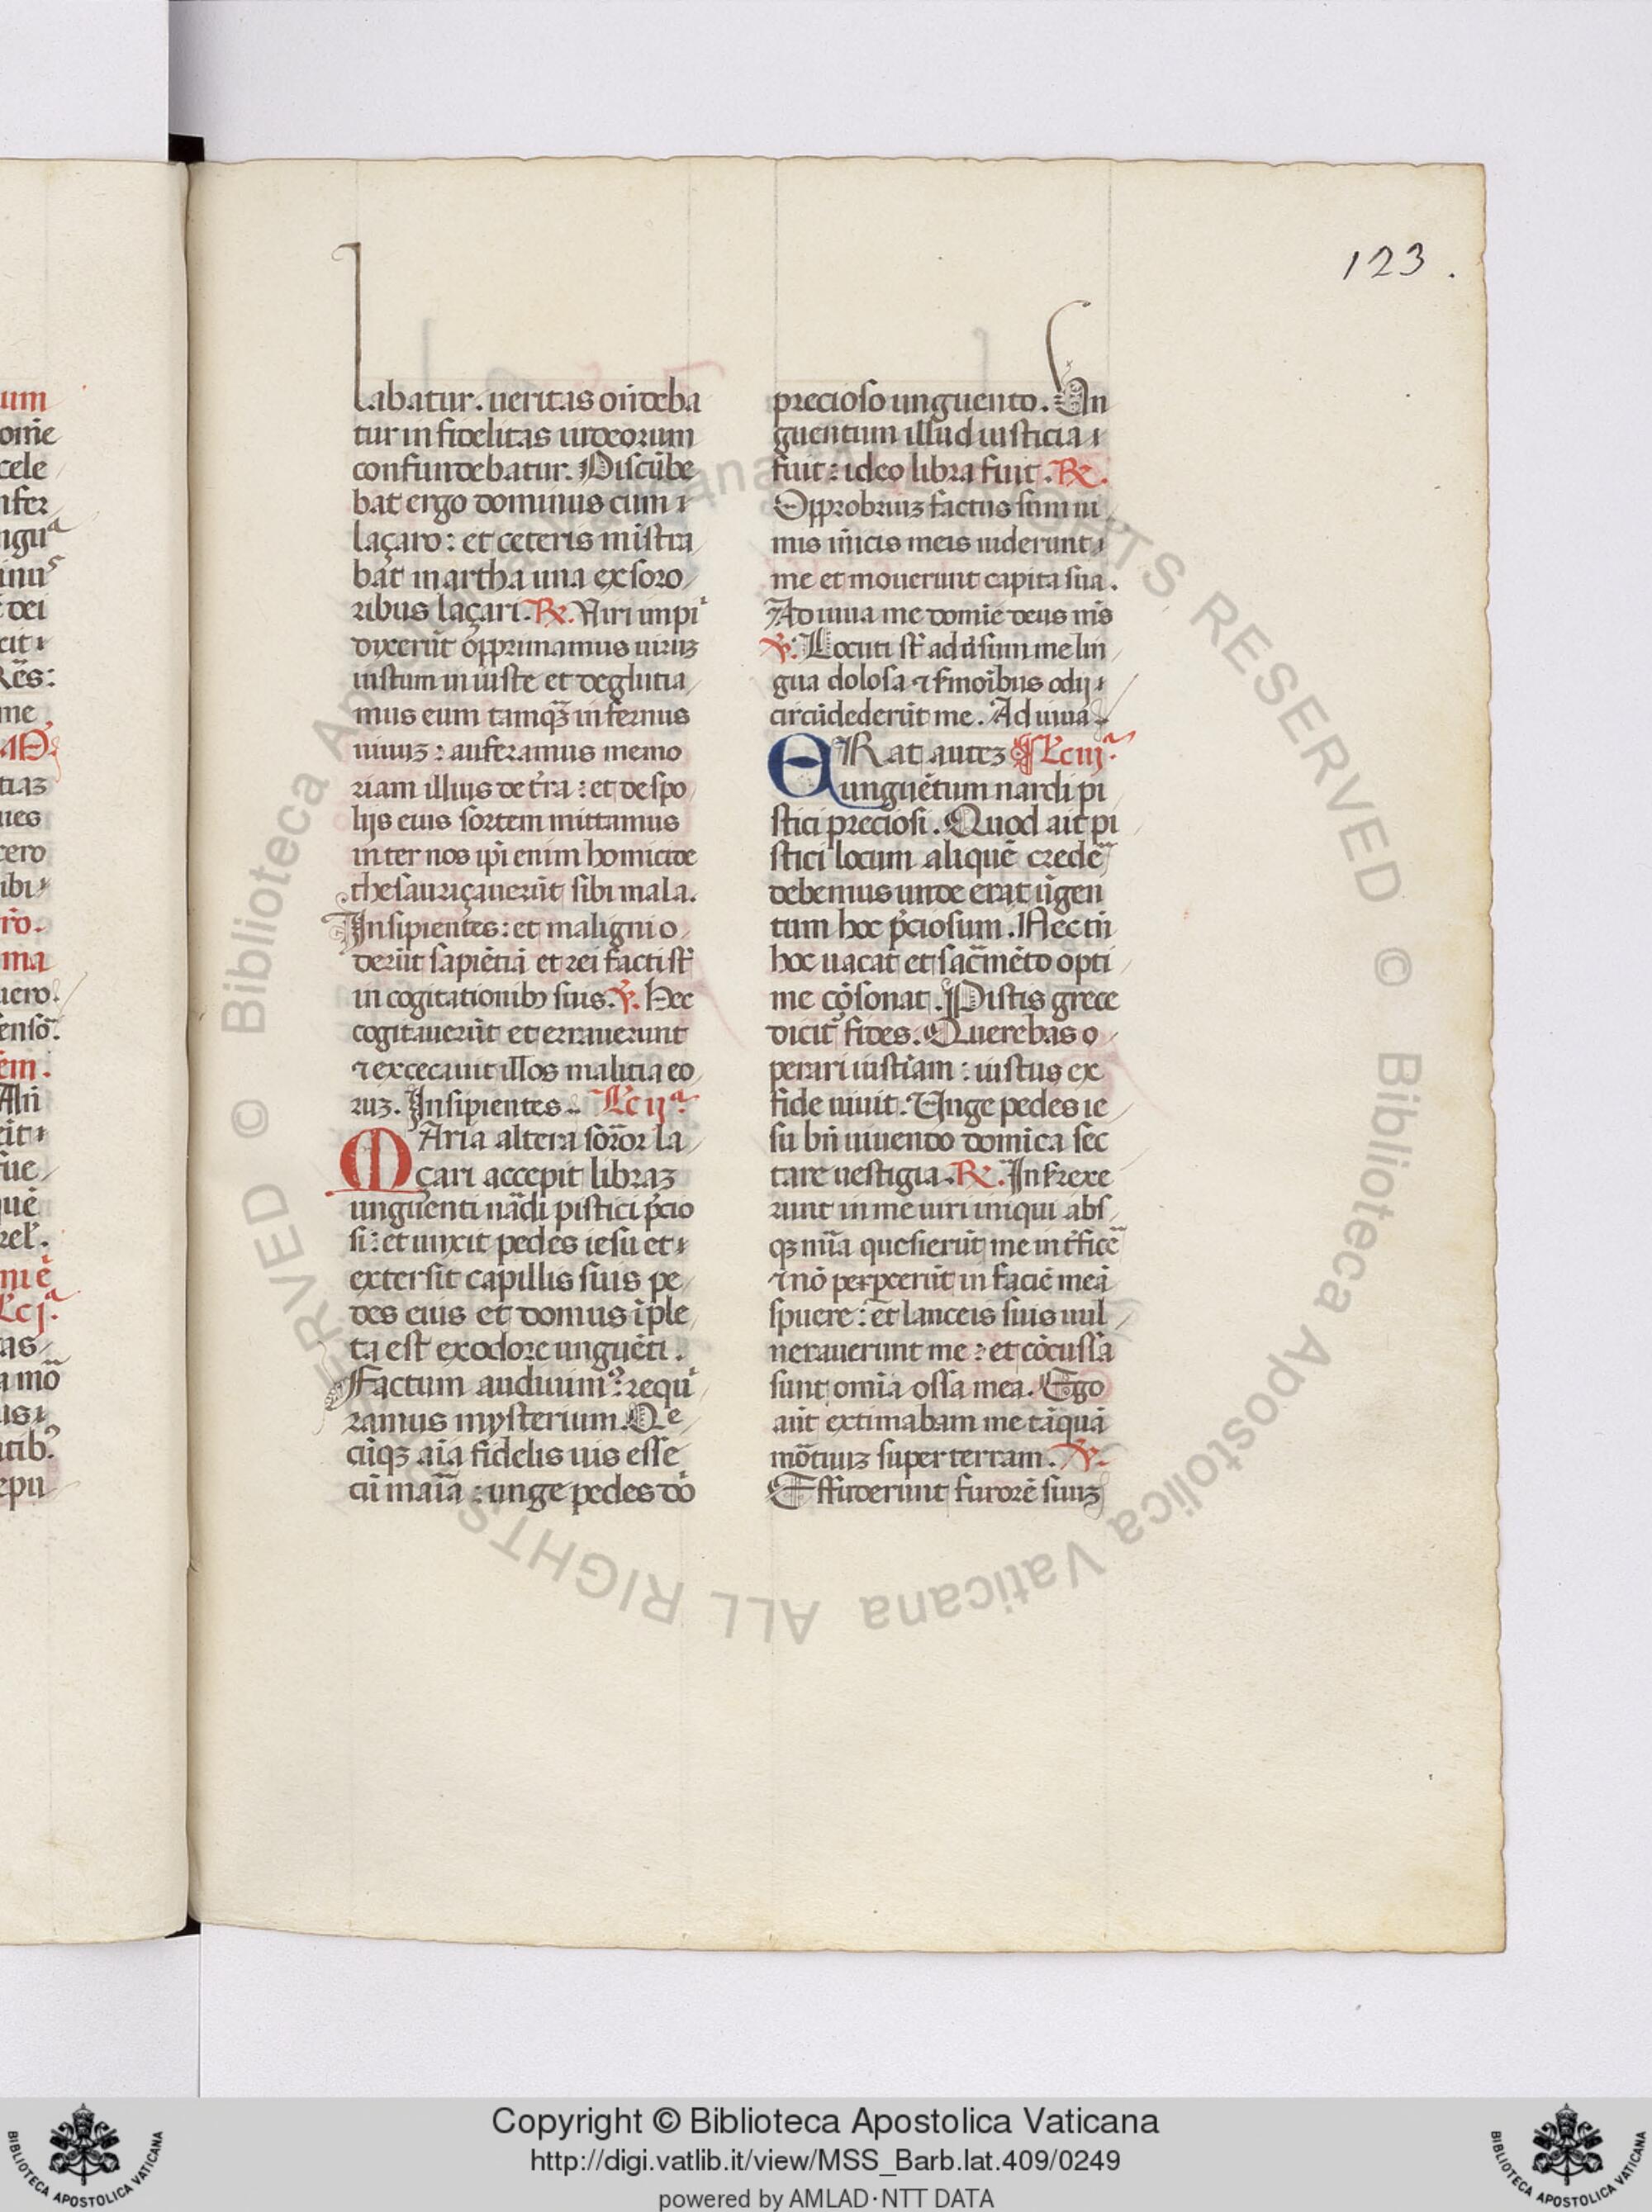 123.
labatur. ueritas oñdeba
tur infidelitas iudeorum
confundebatur. Discūbe
bat ergo dominus cum
laçaro: et ceteris mīstra
bat martha una ex soro
ribus laçari. R. Viri impi
dixerūt opprimamus uiruz
iustum iniuste et deglutia
mus eum tamqȝ infernus
uiuuz: auferamus memo
riam illius de tr̄a: et de spo
lijs eius sortem mittamus
inter nos ip̄i enim homicide
thesauriçauerūt sibi mala.
Insipientes: et maligni o
derūt sapiētiā et rei facti st̄
in cogitationibȝ suis. V. Hec
cogitauerūt et errauerunt
⁊ excecauit illos malitia eo
ruz. Insipientes. Lc ijᵃ.
MAria altera soror la
çari accepit libraz
unguenti nardi pistici p̄cio
si: et unxit pedes iesu et
extersit capillis suis pe
des eius et domus īple
ta est ex odore unguēti.
Factum audiuimꝰ: requi
ramus mysterium. Que
cūqȝ aīa fidelis uis esse
cū maīa: unge pedes dō
precioso unguento. Un
guentum illud iusticia
fuit: ideo libra fuit. R.
Opprobriuz factus sum ni
mis inīcis meis uiderunt
me et mouerunt capita sua.
Adiuua me domīe deus ms̄
V. Locuti st̄ aduersum me lin
gua dolosa ⁊ s̄monībus odij
circūdederūt me. Adiuua
ERat autez Lc iijᵃ.
unguētum nardi pi
stici preciosi. Quod ait pi
stici locum aliquē crede
debemus unde erat ūgen
tum hoc p̄ciosum. Nec tn̄
hoc uacat et sac̄mēto opti
me cōsonat. Pistis grece
dicit̄ fides. Querebas o
perari iustīam: iustus ex
fide uiuit. Unge pedes ie
su bn̄ uiuendo domīca sec
tare uestigia. R. Insurrexe
runt in me uiri iniqui abs
qȝ mīa quesierūt me int̄ficē
⁊ nō pepercerūt in faciē meā
spuere: et lanceis suis uul
nerauerunt me: et cōcussa
sunt omīa ossa mea. Ego
aūt extimabam me tāquā
mōtuuz super terram. V.
Effuderunt furorē suuz
Copyright © Biblioteca Apostolica Vaticana
http://digi.vatlib.it/view/MSS_Barb.lat.409/0249
powered by AMLAD·NTT DATA